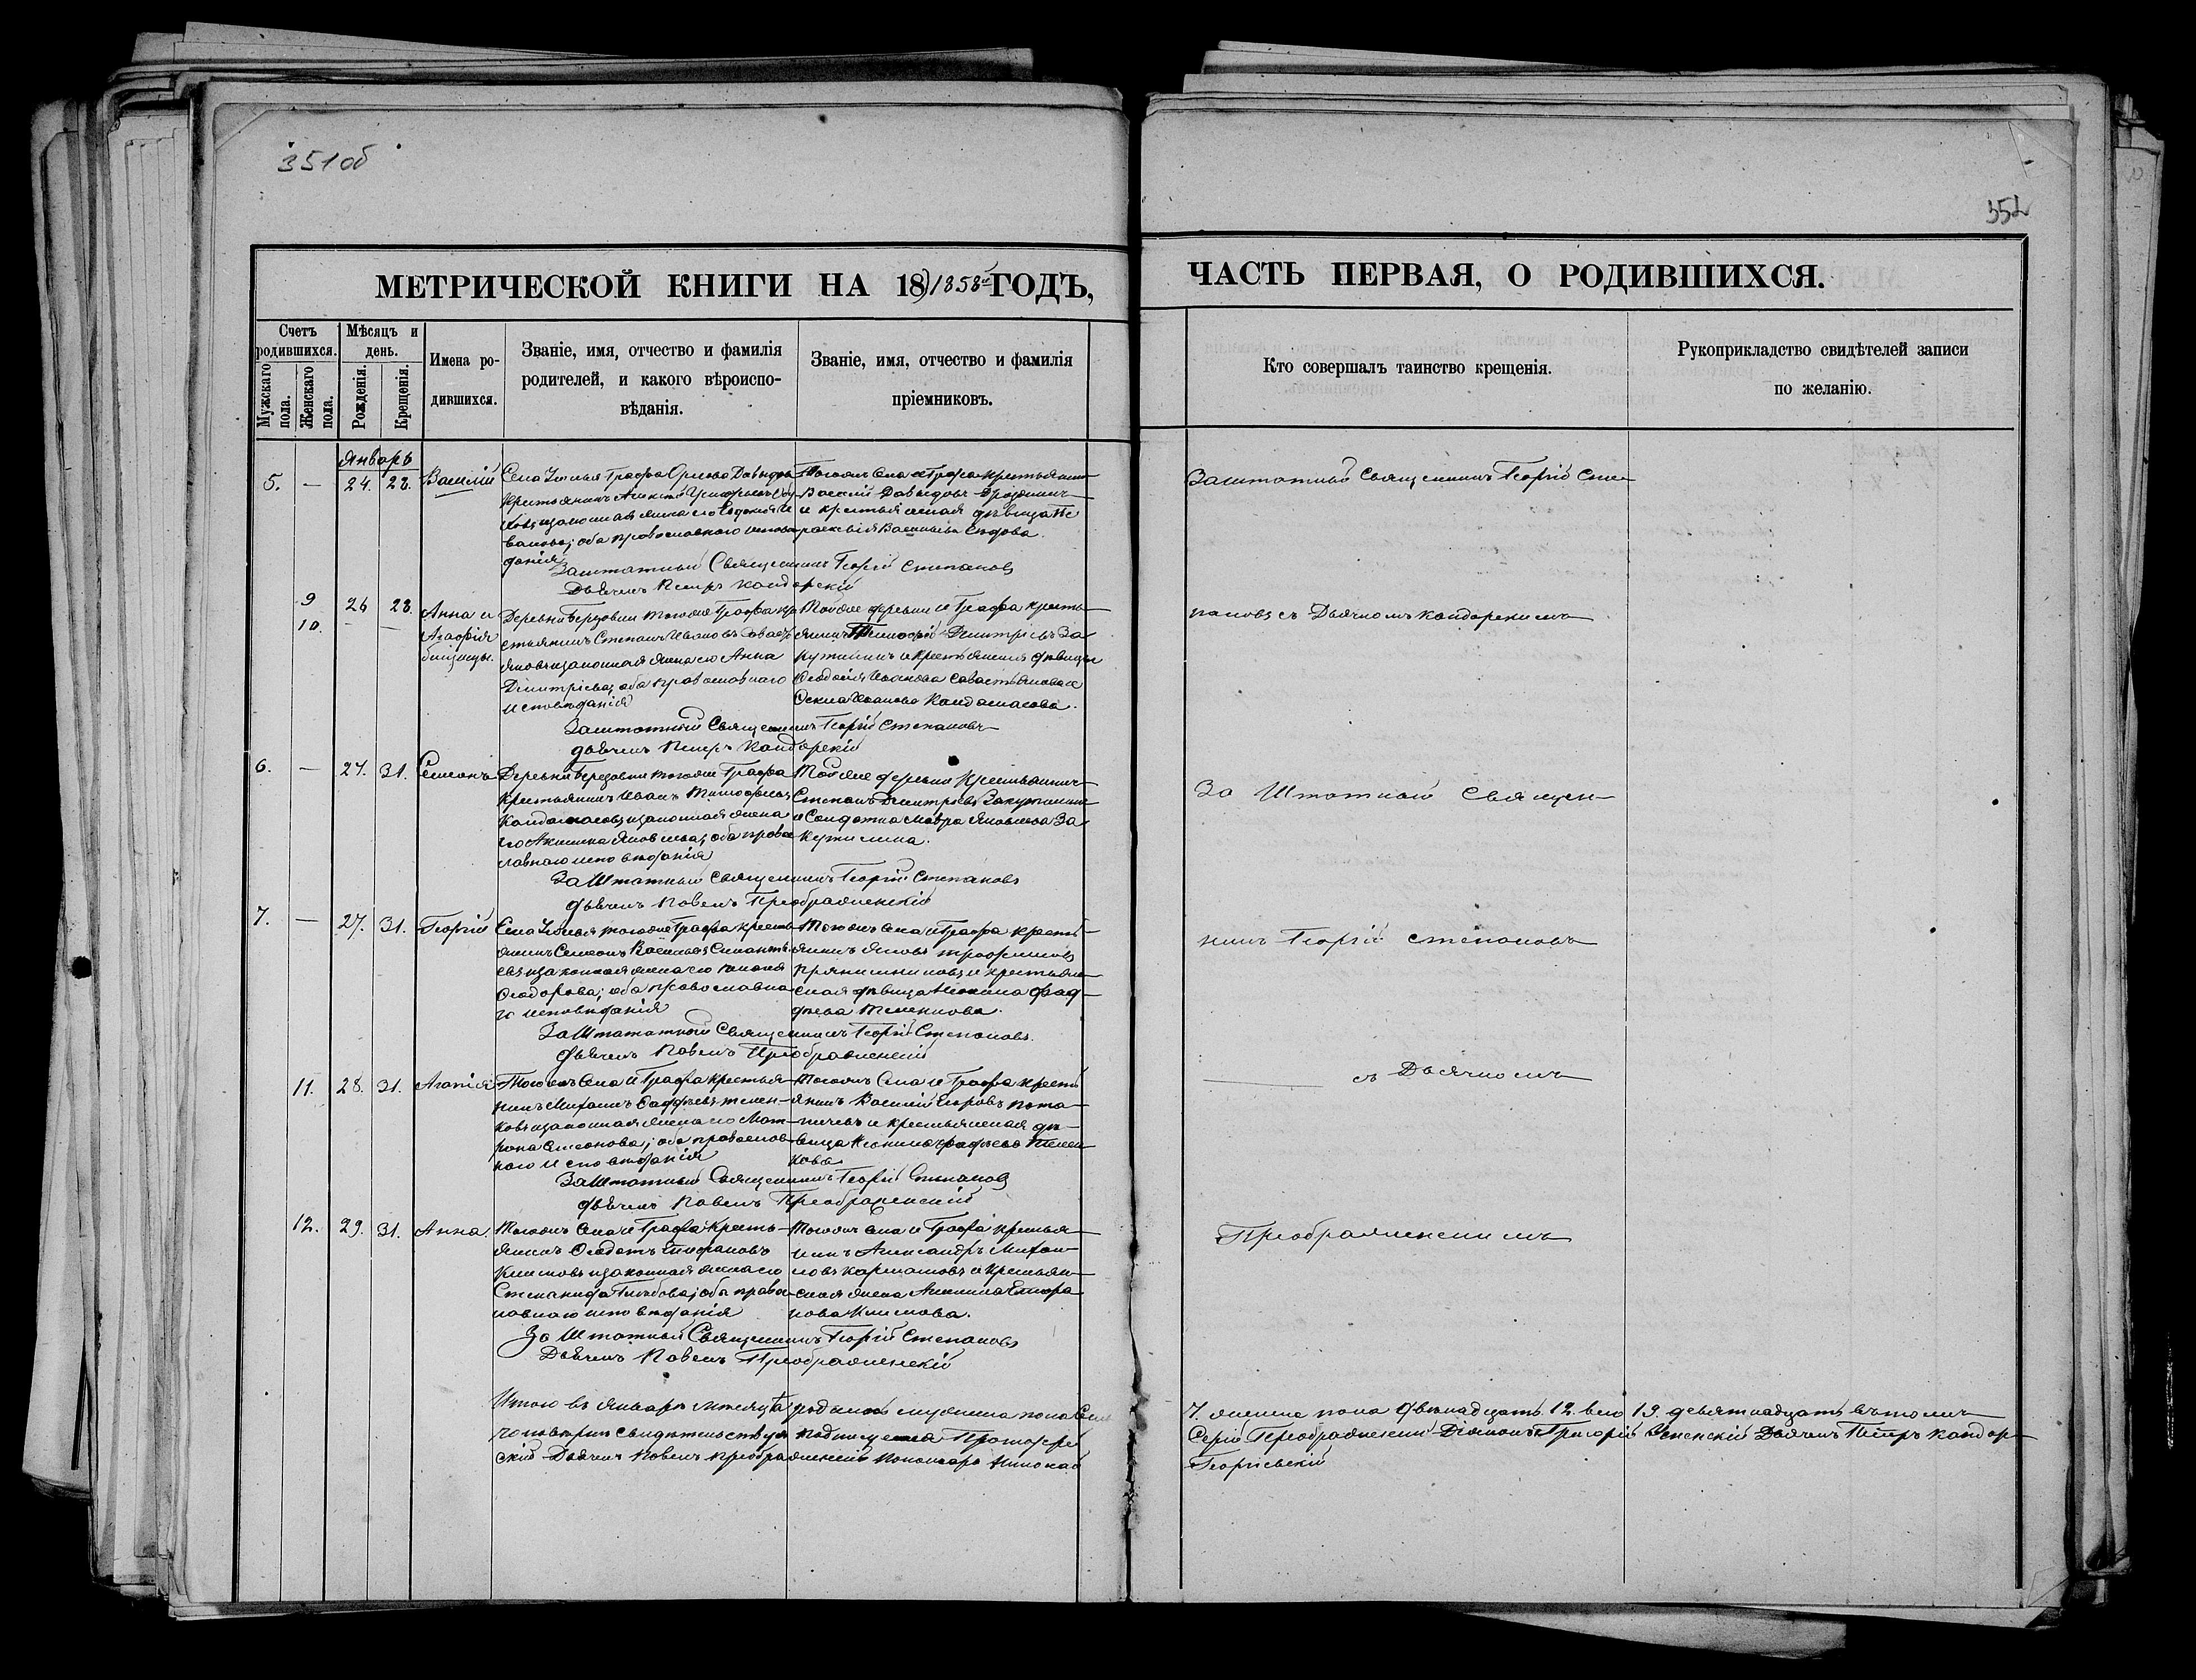 351об
352
МЕТРИЧЕСКОЙ КНИГИ НА 18 1858й ГОДЪ,
ЧАСТЬ ПЕРВАЯ, О РОДИВШИХСЯ.
Счетъ родившихся.
Мужскаго пола.
Женскаго пола.
Мѣсяцъ и день.
Рожденія.
Крещенія.
Имена родившихся.
Званіе, имя, отчество и фамилія
родителей, и какого вѣроиспо-
вѣданія.
Званіе, имя, отчество и фамилія
пріемниковъ.
Кто совершалъ таинство крещенія.
Рукоприкладство свидѣтелей записи
по желанію.
Январь
5. — 24. 28. Василій
Села Усолья Графа Орлова Давыдова
Крестьянинъ
законная жена его Евдокія И
ванова; оба православнаго исповѣ
данія
Тогожъ села и Графа крестьянин
Василій Давыдовъ
и крестьянская дѣвица Па
раскевія Васильева Сѣдова.
Заштатный Священникъ Георгій Степановъ
Дьячекъ Петръ Кандорскій
Заштатный Священникъ Георгій Сте-
9 10. 26 28 Анна и
Агафія
близнецы.
Деревни Березовки тогоже Графа кре
стьянинъ Степанъ Ивановъ Савасть
яновъ изаконная жена его Анна
Димитріева, оба православнаго
исповѣданія
Тойже деревни и Графа кресть
янинъ Тимофей Димитріевъ За
кутилинъ и крестьянския дѣвицы
Феодосія Иванова Савастьянова и
Иванова Кандалахова.
Заштатный Священникъ Георгій Степановъ
дьячекъ Петръ Кандорскій
пановъ съ Дьячкомъ Кандорскимъ
6. — 27. 31. Семенъ
Деревни Березовки тогоже Графа
Крестьянинъ Иванъ Тимофеевъ
изаконная жена
его Акилина Яковлева; оба право
славнаго исповѣданія
Тойже деревни Крестьянинъ
Степанъ Димитріевъ Закутилинъ
и Солдатка Мавра Яковлева За
кутилина.
За Штатный Священникъ Георгій Степановъ
дьячекъ Павелъ Преображенскій
За Штатной Священ-
7. — 27. 31. Георгій
Села Усолья тогоже Графа кресть
янинъ Семенъ Васильевъ
изаконная жена его
Феодорова; оба православна
го исповѣданія
Тогожъ села и Графа кресть
янинъ Яковъ Трофимовъ
Прянишниковъ и крестьян
ская дѣвица Ксенія Фад
дѣева Теленкова.
За Штатный Священникъ Георгій Степановъ.
дьячекъ Павелъ Преображенскій
никъ Георгій Степановъ
11. 28. 31. Агапія
Тогожъ Села и Графа крестья
нинъ Михаилъ Фаддѣевъ Телен-
ковъ изаконная жена его Мат-
рона Симонова; оба православ
наго исповѣданія
Тогожъ Села и Графа кресть
янинъ Василій Егоровъ Пота-
пичевъ и крестьянская дѣ-
вица Ксенія Фадѣева Телен
кова
За Штатный Священникъ Георгій Степановъ
дьячекъ Павелъ Преображенскій
съ Дьячкомъ
12. 29. 31. Анна.
Тогожъ Села и Графа Кресть-
янинъ Федотъ
Климовъ изаконная жена его
Степанида Глѣбова; оба право
славнаго исповѣданія
Тогожъ села и Графа крестья
нинъ Александръ Михаи
ловъ и Крестьян
ская жена
Климова.
За Штатный Священникъ Георгій Степановъ
Дьячекъ Павелъ Преображенскій
Преображенскимъ
Итого въ Январѣ мѣсяцѣ родилось мужеска пола Семь
7. женска пола двѣнадцать 12. всего 19. девятнадцать въ томъ
свидѣтельствуя подписуемся Протоіерей
Сергій Преображенскій Діаконъ Григорій Успенскій Дьячекъ Петръ Кандор-
скій Дьячекъ Павелъ Преображенскій Пономарь Николай
Георгіевскій